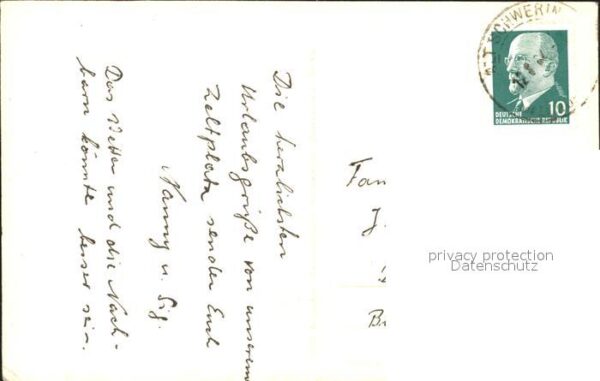 Die herzlichsten
Urlaubsgrüße von unserem
Zeltplatz senden Euch
Nanny u. Sig.
Das Wetter und die Nach-
barn könnte besser sein.
Fam
J.
Br
ALT SCHWERIN
10
DEUTSCHE
DEMOKRATISCHE REPUBLIK
privacy protection
Datenschutz